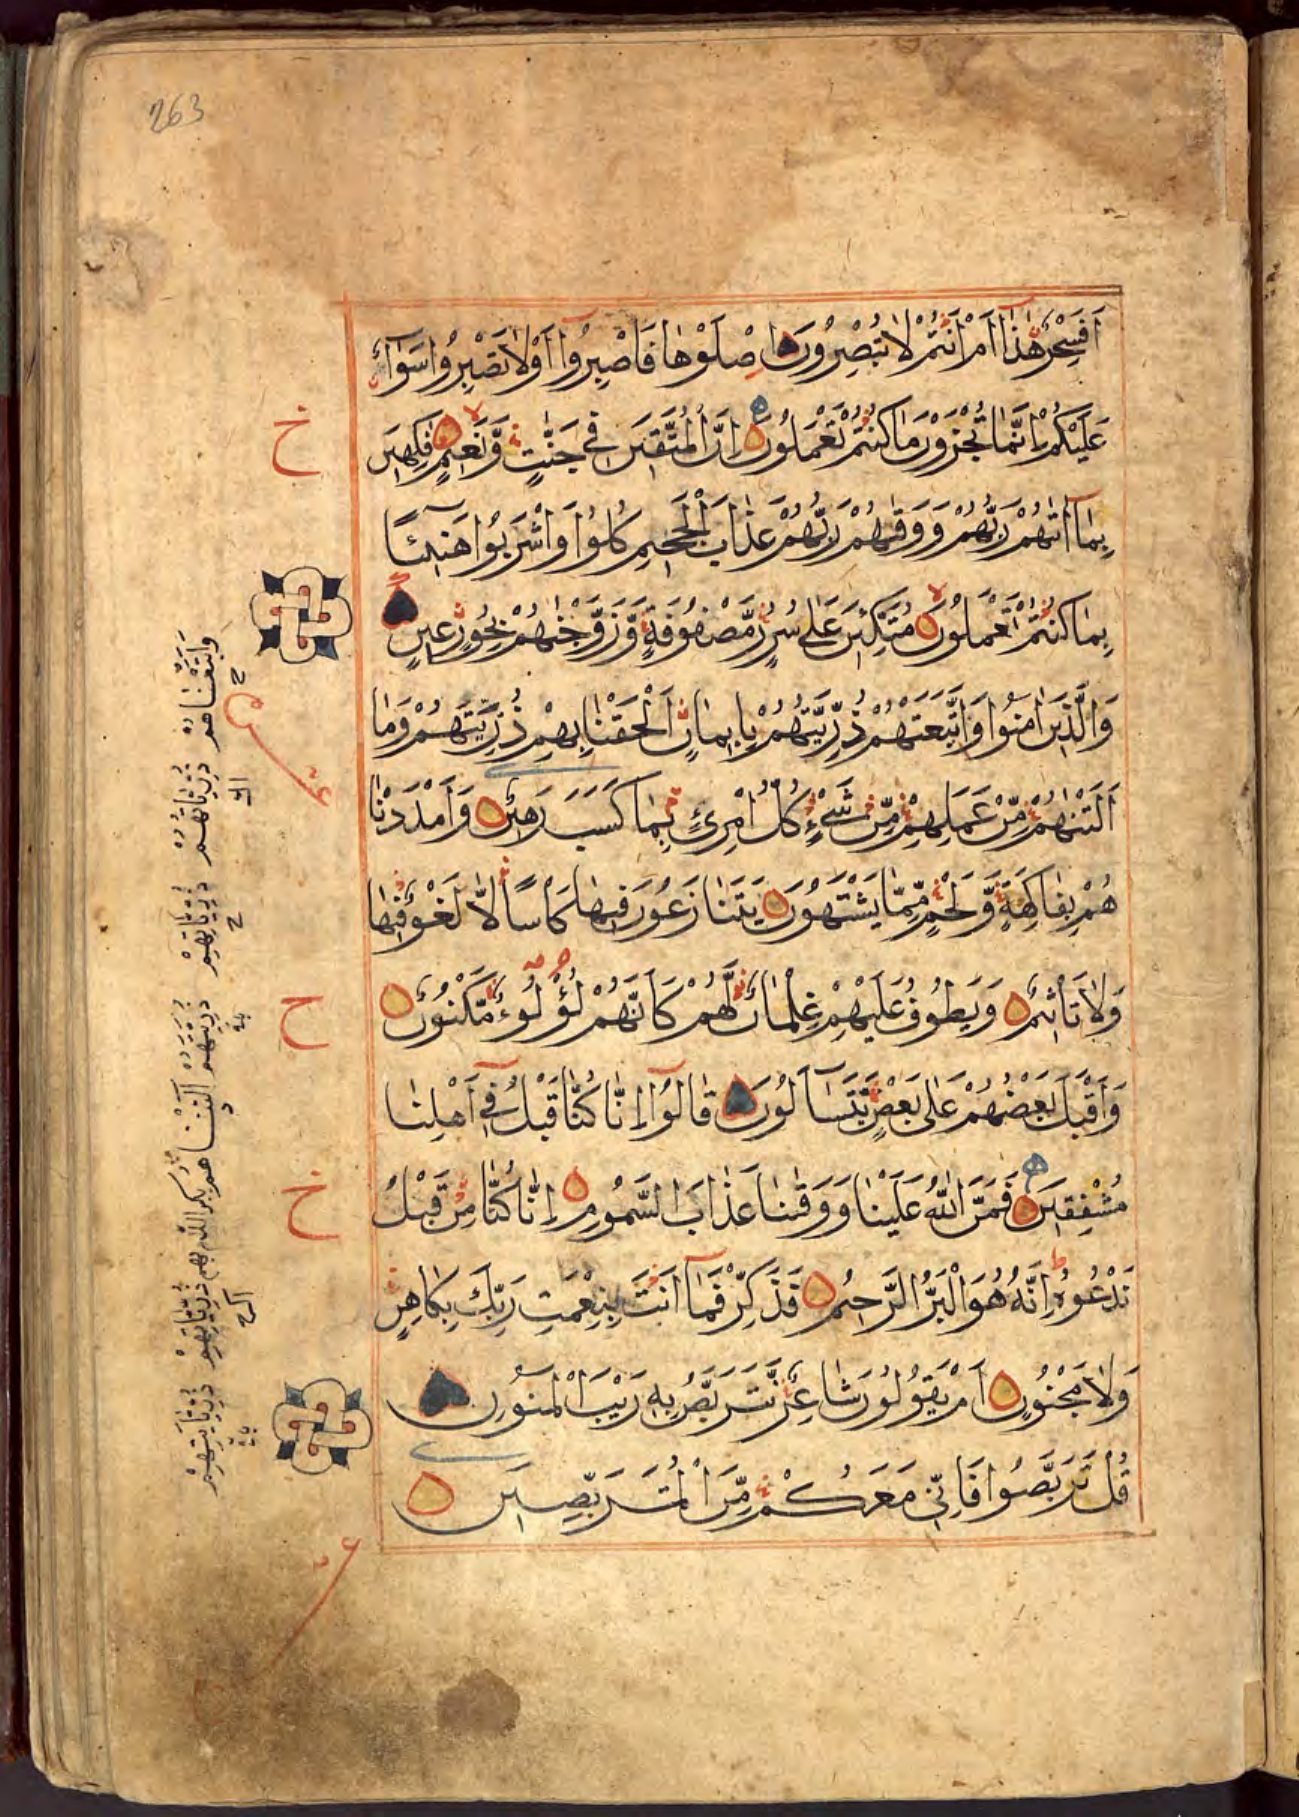 263
اَفَسِحْرٌ هٰذَا اَمْ اَنْتُمْ لَا تُبْصِرُونَ اِصْلَوْهَا فَاصْبِرُوا اَوْ لَا تَصْبِرُوا سَوَاۤءٌ
عَلَيْكُمْ اِنَّمَا تُجْزَوْنَ مَا كُنْتُمْ تَعْمَلُونَ اِنَّ الْمُتَّقِينَ فِي جَنّٰتٍ وَّنَعِيْمٍ فٰكِهِيْنَ
بِمَآ اٰتٰهُمْ رَبُّهُمْ وَوَقٰهُمْ رَبُّهُمْ عَذَابَ الْجَحِيْمِ كُلُوْا وَاشْرَبُوْا هَنِيْئًا
بِمَا كُنْتُمْ تَعْمَلُوْنَ مُتَّكِئِيْنَ عَلٰى سُرُرٍ مَّصْفُوْفَةٍ وَّزَوَّجْنٰهُمْ بِحُوْرٍ عِيْنٍ
وَالَّذِيْنَ اٰمَنُوْا وَاتَّبَعَتْهُمْ ذُرِّيَّتُهُمْ بِاِيْمَانٍ اَلْحَقْنَا بِهِمْ ذُرِّيَّتَهُمْ وَمَا
اَلَتْنٰهُمْ مِّنْ عَمَلِهِمْ مِّنْ شَيْءٍ كُلُّ امْرِئٍ بِمَا كَسَبَ رَهِيْنٌ وَاَمْدَدْنَا
هُمْ بِفَاكِهَةٍ وَّلَحْمٍ مِّمَّا يَشْتَهُوْنَ يَتَنَازَعُوْنَ فِيْهَا كَاْسًا لَّا لَغْوٌ فِيْهَا
وَلَا تَاْثِيْمٌ وَيَطُوْفُ عَلَيْهِمْ غِلْمَانٌ لَّهُمْ كَاَنَّهُمْ لُؤْلُوءٌ مَّكْنُوْنٌ
وَاَقْبَلَ بَعْضُهُمْ عَلٰى بَعْضٍ يَّتَسَآلُوْنَ قَالُوْٓا اِنَّا كُنَّا قَبْلُ فِيْٓ اَهْلِنَا
مُشْفِقِيْنَ فَمَنَّ اللّٰهُ عَلَيْنَا وَوَقٰنَا عَذَابَ السَّمُوْمِ اِنَّا كُنَّا مِنْ قَبْلُ
نَدْعُوْهُ اِنَّهُ هُوَ الْبَرُّ الرَّحِيْمُ فَذَكِّرْ فَمَآ اَنْتَ بِنِعْمَتِ رَبِّكَ بِكَاهِنٍ
وَلَا مَجْنُوْنٍ اَمْ يَقُوْلُوْنَ شَاعِرٌ نَّتَرَبَّصُ بِهِ رَيْبَ الْمَنُوْنِ
قُلْ تَرَبَّصُوْا فَاِنِّيْ مَعَكُمْ مِّنَ الْمُتَرَبِّصِيْنَ